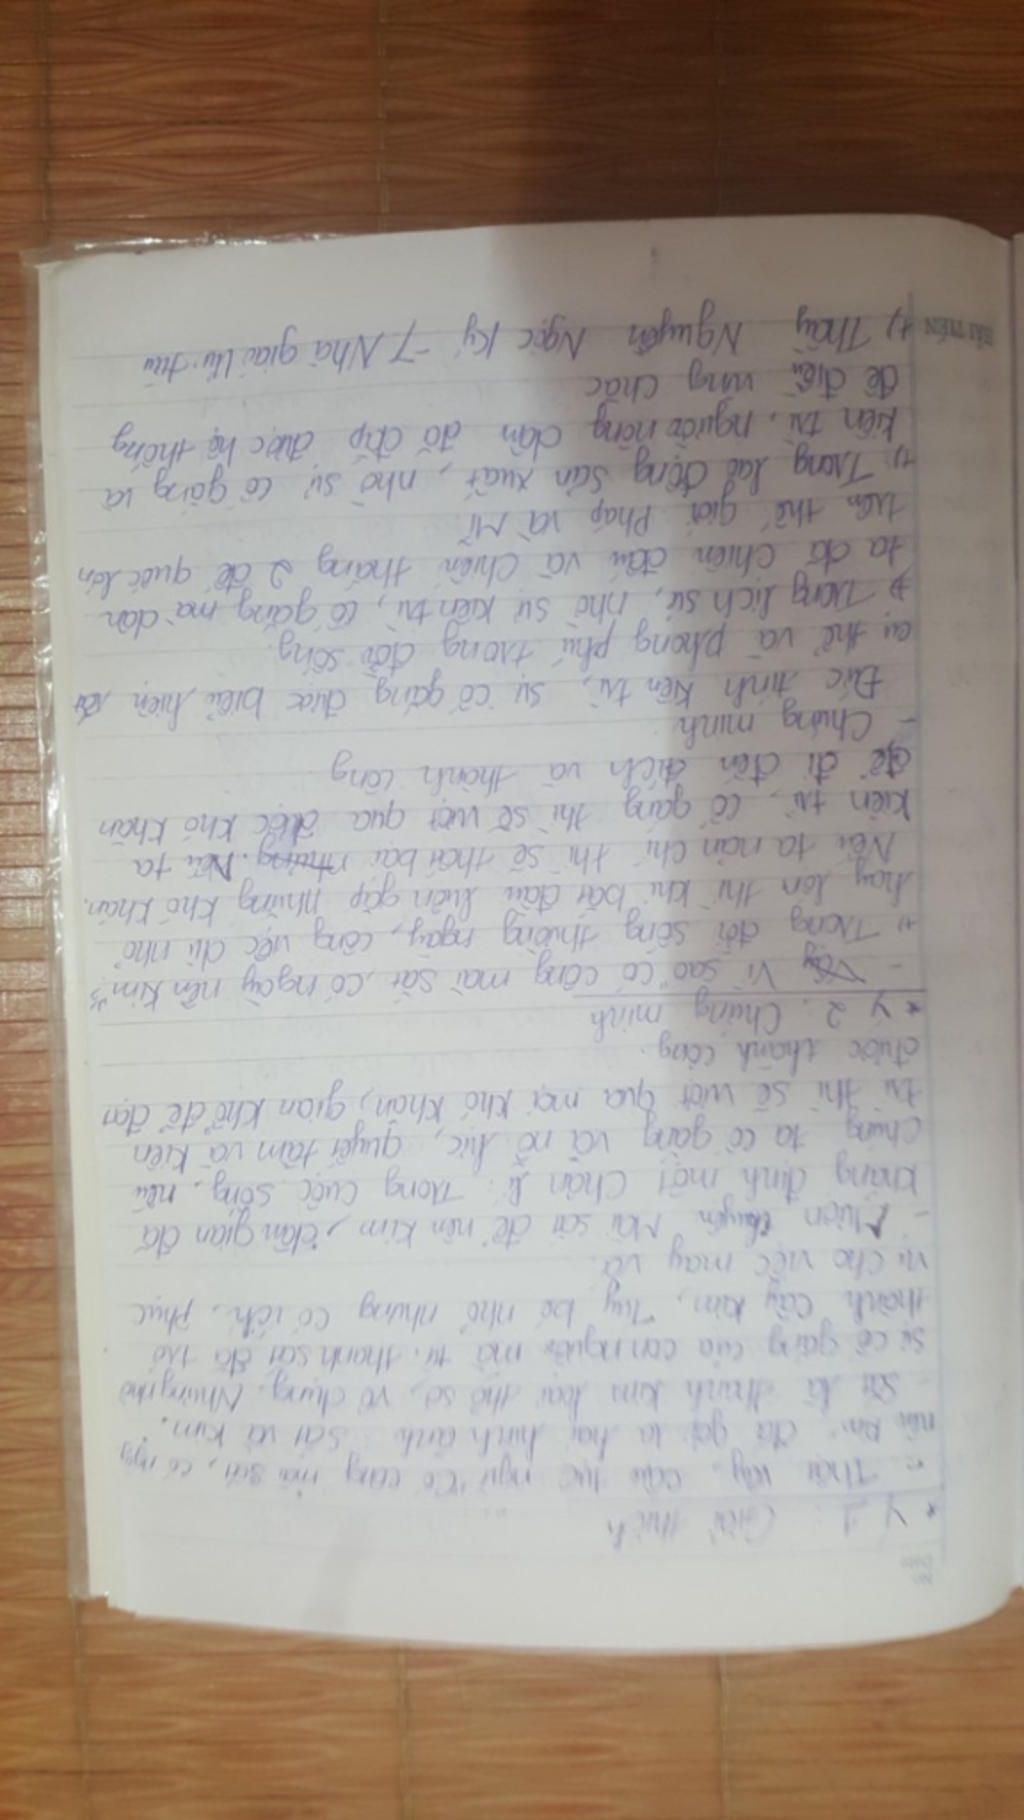 * Ý 1: Giải thích
- Thật vậy, câu tục ngữ "Có công mài sắt, có ngày
nên kim" đã gợi ra hai hình ảnh: sắt và kim.
- Sắt là thanh kim loại thô sơ, vô dụng. Nhưng nhờ
sự cố gắng của con người mà từ thanh sắt đã trở
thành cây kim. Tuy bé nhỏ nhưng có ích, phục
vụ cho việc may vá.
- Mượn chuyện mài sắt để nên kim, dân gian đã
khẳng định một chân lí: Trong cuộc sống, nếu
chúng ta cố gắng và nỗ lực, quyết tâm và kiên
trì thì sẽ vượt qua mọi khó khăn, gian khổ để đạt
được thành công.
* Ý 2: Chứng minh
- Vì sao "có công mài sắt, có ngày nên kim"?
+) Trong đời sống thường ngày, công việc dù nhỏ
hay lớn thì khi bắt đầu luôn gặp những khó khăn.
Nếu ta nản chí thì sẽ thất bại. Nếu ta
kiên trì, cố gắng thì sẽ vượt qua được khó khăn
để đi đến đích và thành công
- Chứng minh
Đức tính kiên trì, sự cố gắng được biểu hiện rất
cụ thể và phong phú trong đời sống.
+) Trong lịch sử, nhờ sự kiên trì, cố gắng mà dân
ta đã chiến đấu và chiến thắng 2 đế quốc lớn
trên thế giới Pháp và Mĩ
+) Trong lao động sản xuất, nhờ sự cố gắng và
kiên trì, người nông dân đã đắp được hệ thống
đê điều vững chắc
+) Thầy Nguyễn Ngọc Ký -> Nhà giáo Ưu tú
HẢI TIẾN